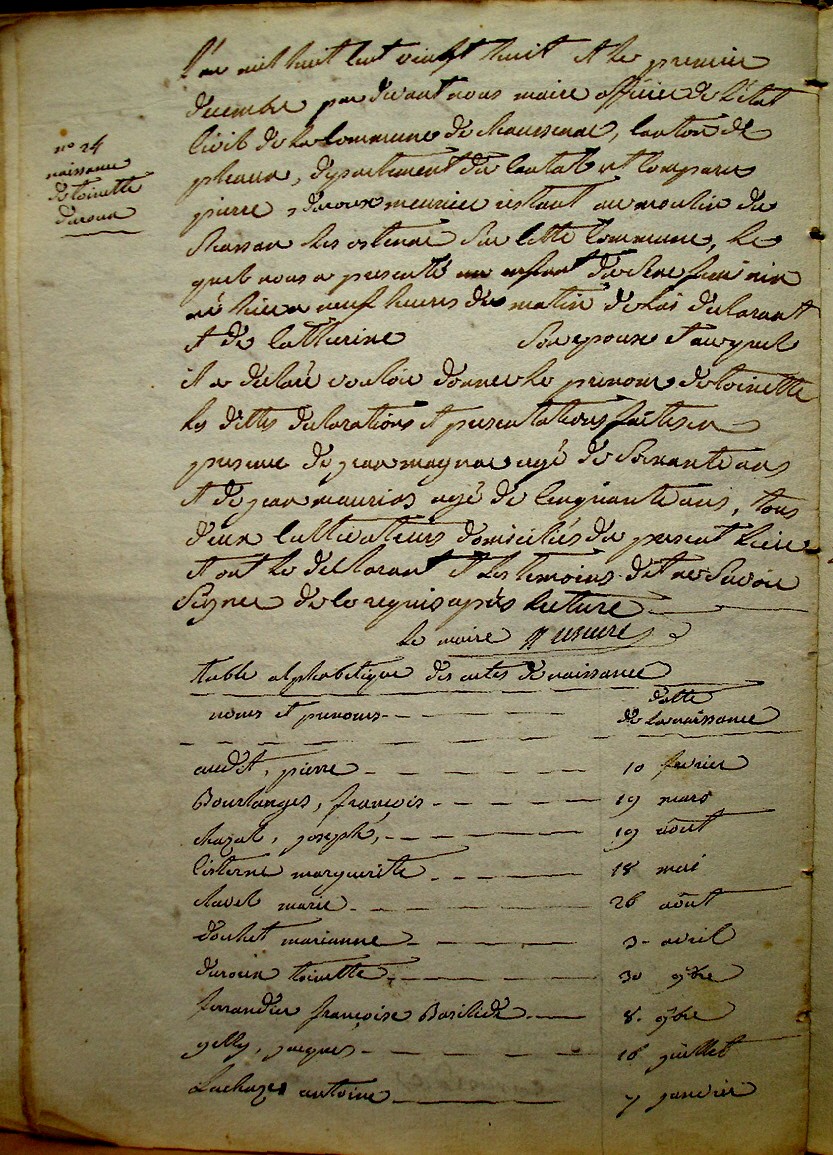 n° 24
naissance
de toinette
duroux
L'an mil huit cent vingt huit et le premier
decembre par devant nous maire officier de l'état
Civil de la Commune de chaussenac, canton de
pleaux, département du Cantal est comparu
pierre duroux meunier restant au moulin de
sur cette Commune, le
quel nous a presenté un enfant du sexe feminin
né hier a neuf heures du matin de lui declarant
et de Catherine son epouse et auquel
il a declaré vouloir donner le prenom de toinette
les dittes declarations et presentations faites en
presence de jean magnac agé de soixante ans
et de jean maurias agé de cinquante ans, tous
deux Cultivateurs domiciliés du present lieu
et ont le declarant et les temoins dit ne savoir
signer de ce requis après lecture
le maire
table alphabetique des actes de naissance
noms et prenoms datte
de la naissance
audit, pierre 10 fevrier
Bourlanges, françois 19 mars
chazal, joseph, 19 août
Cisterne marguerite 18 mai
clavel marie 26 août
douhet marianne 3 avril
duroux toinette 30 9bre
ferrandier françoise Basilide 8 9bre
gelly, jacques 16 juillet
Lachaze antoine 7 janvier